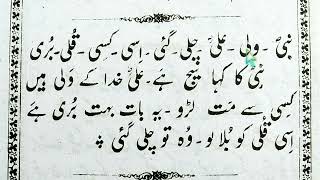 نبیؐ ۔ ولی ۔ علیؑ ۔ چلی ۔ گئی ۔ اسی ۔ کسی ۔ قُلی ۔ بُری
نبیؐ کا کہا سچ ہے ۔ علیؑ خدا کے ولی ہیں
کسی سے مت لڑو ۔ یہ بات بہت بُری ہے
اِسی قُلی کو بُلا لو ۔ وُہ تو چلی گئی